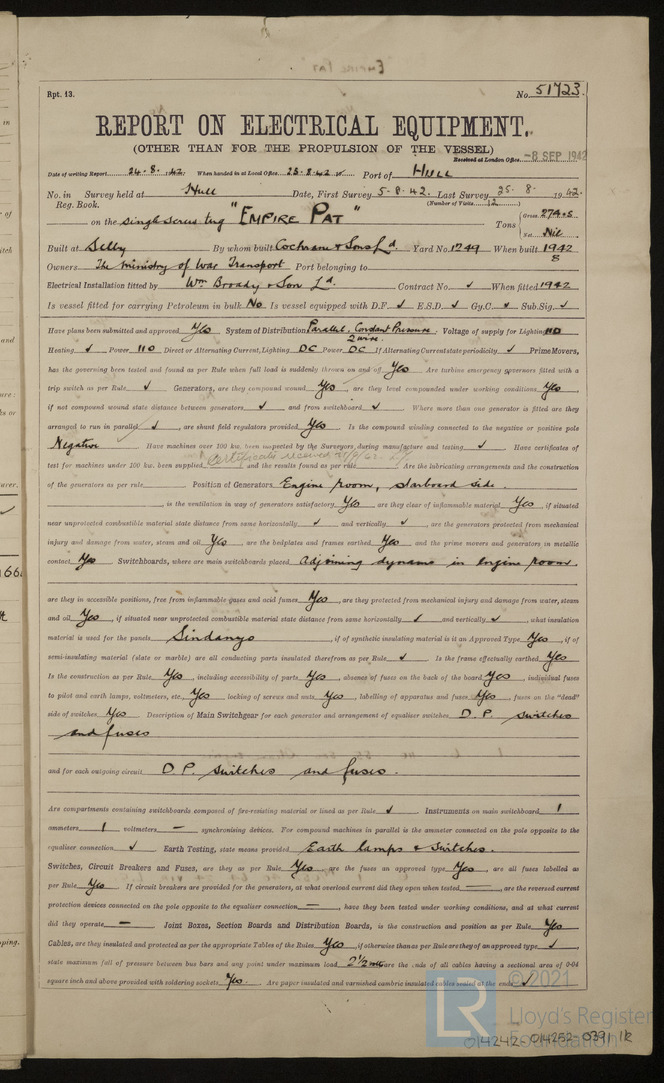 Rpt. 13.
No. 51723.
REPORT ON ELECTRICAL EQUIPMENT.
(OTHER THAN FOR THE PROPULSION OF THE VESSEL)
Received at London Office -8 SEP 1942
Date of writing Report 24.8.42. When handed in at Local Office 25.8.42 Port of Hull
No. in Survey held at Hull Date, First Survey 5-8-42. Last Survey 25.8.1942.
Reg. Book. (Number of Visits 12)
on the single screw tug "EMPIRE PAT" Tons Gross 274.5
Net Nil
Built at Selby By whom built Cochrane & Sons Ld. Yard No. 1249 When built 1942
8
Owners The Ministry of War Transport Port belonging to
Electrical Installation fitted by Wm Broady & Son Ld. Contract No. ✓ When fitted 1942
Is vessel fitted for carrying Petroleum in bulk No Is vessel equipped with D.F. ✓ E.S.D. ✓ Gy.C. ✓ Sub.Sig. ✓
Have plans been submitted and approved Yes System of Distribution Parallel. Constant Pressure. Voltage of supply for Lighting 110
2 wire.
Heating ✓ Power 110 Direct or Alternating Current, Lighting DC Power DC If Alternating Current state periodicity ✓ Prime Movers,
has the governing been tested and found as per Rule when full load is suddenly thrown on and off Yes Are turbine emergency governors fitted with a
trip switch as per Rule ✓ Generators, are they compound wound Yes, are they level compounded under working conditions Yes
if not compound wound state distance between generators ✓ and from switchboard ✓ Where more than one generator is fitted are they
arranged to run in parallel ✓, are shunt field regulators provided Yes Is the compound winding connected to the negative or positive pole
Negative Have machines over 100 kw. been inspected by the Surveyors during manufacture and testing ✓ Have certificates of
test for machines under 100 kw. been supplied Certificate received and the results found as per rule Are the lubricating arrangements and the construction
of the generators as per rule Position of Generators Engine room, starboard side.
, is the ventilation in way of generators satisfactory Yes, are they clear of inflammable material Yes, if situated
near unprotected combustible material state distance from same horizontally ✓ and vertically ✓, are the generators protected from mechanical
injury and damage from water, steam and oil Yes, are the bedplates and frames earthed Yes and the prime movers and generators in metallic
contact Yes Switchboards, where are main switchboards placed Adjoining dynamo in Engine room.
are they in accessible positions, free from inflammable gases and acid fumes Yes, are they protected from mechanical injury and damage from water, steam
and oil Yes, if situated near unprotected combustible material state distance from same horizontally ✓ and vertically ✓, what insulation
material is used for the panels Sindanyo, if of synthetic insulating material is it an Approved Type Yes, if of
semi-insulating material (slate or marble) are all conducting parts insulated therefrom as per Rule ✓ Is the frame effectually earthed Yes
Is the construction as per Rule Yes, including accessibility of parts Yes, absence of fuses on the back of the board Yes, individual fuses
to pilot and earth lamps, voltmeters, etc. Yes locking of screws and nuts Yes, labelling of apparatus and fuses Yes, fuses on the "dead"
side of switches Yes Description of Main Switchgear for each generator and arrangement of equaliser switches D.P. switches
and fuses
and for each outgoing circuit D.P. switches and fuses.
Are compartments containing switchboards composed of fire-resisting material or lined as per Rule ✓ Instruments on main switchboard 1
ammeters 1 voltmeters — synchronising devices. For compound machines in parallel is the ammeter connected on the pole opposite to the
equaliser connection ✓ Earth Testing, state means provided Earth lamps & switches.
Switches, Circuit Breakers and Fuses, are they as per Rule Yes, are the fuses an approved type Yes, are all fuses labelled as
per Rule Yes If circuit breakers are provided for the generators, at what overload current did they open when tested —, are the reversed current
protection devices connected on the pole opposite to the equaliser connection —, have they been tested under working conditions, and at what current
did they operate — Joint Boxes, Section Boards and Distribution Boards, is the construction and position as per Rule Yes
Cables, are they insulated and protected as per the appropriate Tables of the Rules Yes, if otherwise than as per Rule are they of an approved type ✓,
state maximum fall of pressure between bus bars and any point under maximum load 2½ are the ends of all cables having a sectional area of 0·04
square inch and above provided with soldering sockets Yes. Are paper insulated and varnished cambric insulated cables sealed at the ends ✓
© 2021
LR
Lloyd's Register
Foundation
014242-014252-0391 1/2